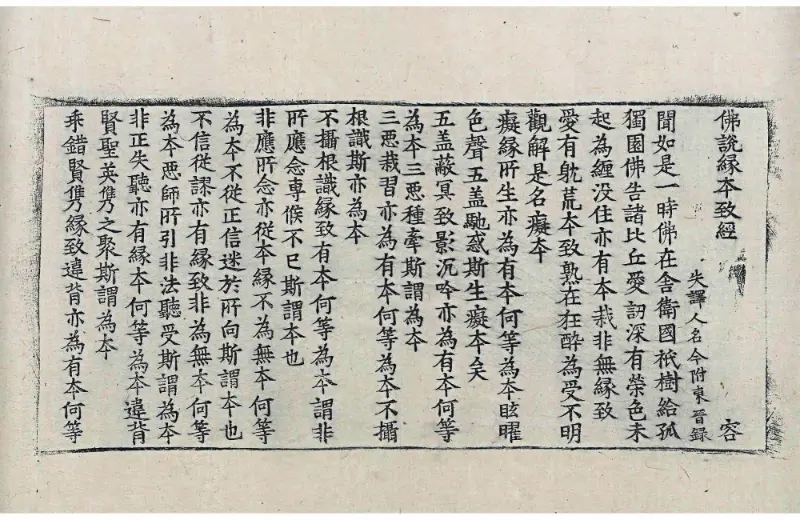 佛說緣本致經 容
失譯人名今附東晉録
聞如是一時佛在舎衛國祇樹給孤
獨園佛告諸比丘愛訒深有榮色未
起為纏没住亦有本哉非無緣致
愛有躭荒本致熟在狂醉為受不明
觀解是名癡本
癡緣所生亦為有本何等為本眩曜
色聲五盖馳惑斯生癡本矣
五盖蔽冥致影沉吟亦為有本何等
為本三惡種牽斯謂為本
三惡栽習亦為有本何等為本不攝
根識斯亦為本
不攝根識緣致有本何等為本謂非
所應念專惟不巳斯謂本也
非應所念亦從本緣不為無本何等
為本不從正信迷於所向斯謂本也
不信從謬亦有緣致非為無本何等
為本惡師所引非法聽受斯謂為本
非正失聽亦有緣本何等為本違背
賢聖英儁之聚斯謂為本
乖錯賢儁緣致違背亦為有本何等